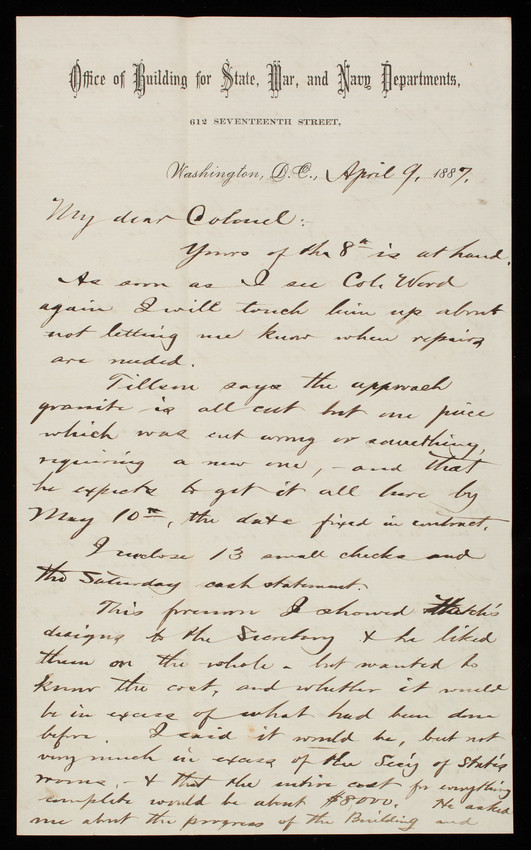 Office of Building for State, War, and Navy Departments,
612 SEVENTEENTH STREET,
Washington, D.C., April 9, 1887.
My dear Colonel:
Yours of the 8th is at hand.
As soon as I see Col. Word
again I will touch him up about
not letting me know when repairs
are needed.
Tillson says the approach
granite is all cut but one piece
which was cut wrong or something,
requiring a new one, - and that
he expects to get it all here by
May 10th, the date fixed in contract.
I inclose 13 small checks and
the Saturday cash statement.
This forenoon I showed
designs to the Secretary & he liked
them on the whole - but wanted to
know the cost, and whether it would
be in excess of what had been done
before. I said it would be, but not
very much in excess of the Sec'y of State's
rooms, - & that the entire cost for everything
complete would be about $8,000. He asked
me about the progress of the Building and